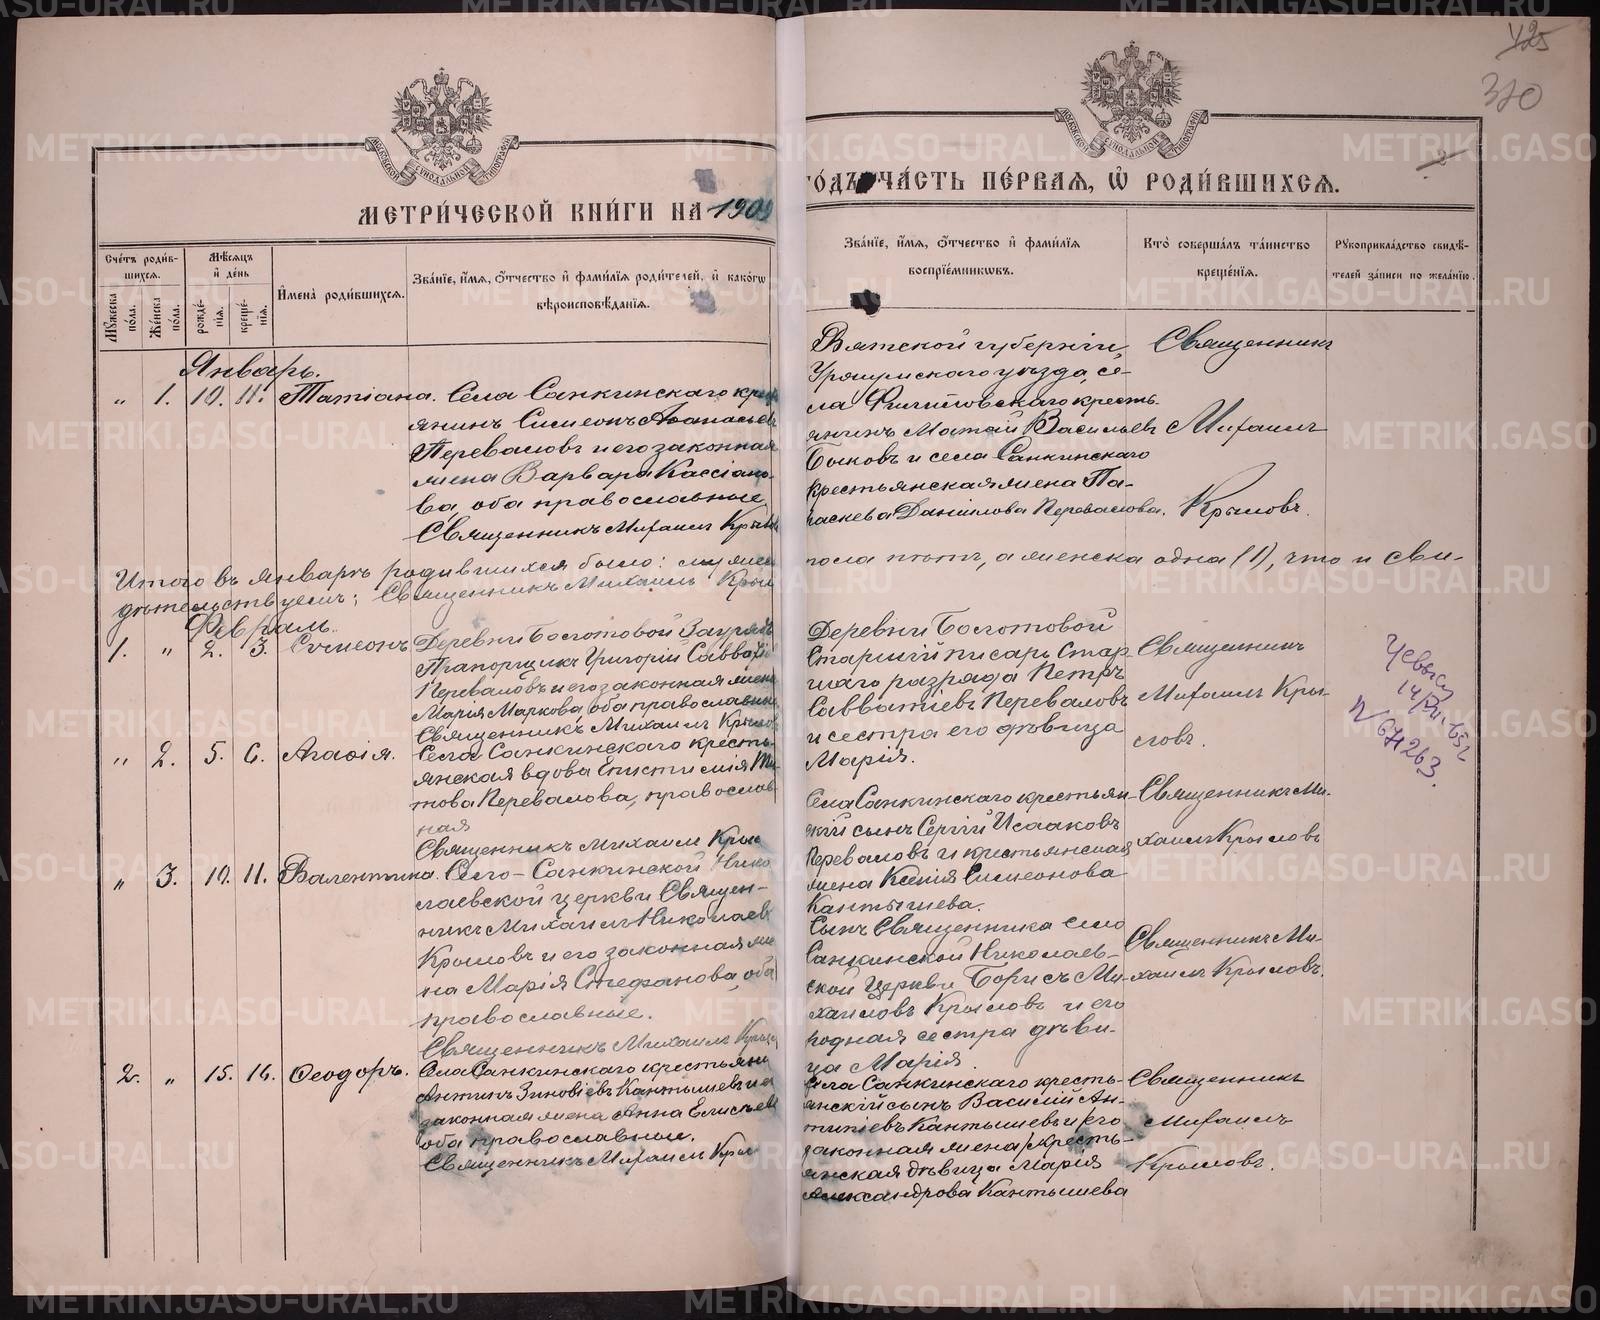 МЕТРИ́ЧЕСКОЙ КНИ́ГИ НА 1909
ГО́ДЪ ЧА́СТЬ ПЕ́РВАѦ, Ѡ҆ РОДИ́ВШИХСѦ.
425
370
Сче́тъ роди́вшихсѧ.
Мꙋ́жеска по́ла.
Же́нска по́ла.
Мѣ́сѧцъ и҆ де́нь
рожде́нїѧ.
креще́нїѧ.
И҆мена̀ роди́вшихсѧ.
Зва́нїе, и҆́мѧ, ѻ҆́тчество и҆ фами́лїѧ роди́телей, и҆ како́гѡ
вѣроисповѣ́данїѧ.
Зва́нїе, и҆́мѧ, ѻ҆́тчество и҆ фами́лїѧ
воспрїе́мникѡвъ.
Кто̀ соверша́лъ та́инство
креще́нїѧ.
Рꙋкоприкла́дство свидѣ́-
телей за́писи по жела́нїю.
Январь.
„ 1. 10. 11. Татіана.
Села Санкинскаго крес
янинъ Симеонъ Аѳанасьев
Переваловъ и его законная
жена Варвара Кассіано-
ва, оба православные
Священникъ Михаилъ Крыл
Вятской губерніи,
Уржумскаго уѣзда, се-
ла крестья-
янинъ Матѳей Васильевъ
Быковъ и села Санкинскаго
крестьянская жена Па-
раскева Даніилова Перевалова.
Священникъ
Михаилъ
Крыловъ.
Итого въ январѣ родившихся было: мужеска
пола нѣтъ, а женска одна (1), что и сви-
дѣтельствуемъ; Священникъ Михаилъ Крыл
Февраль.
1. „ 2. 3. Симеонъ
Деревни Болотовой Зауряд
Прапорщикъ Григорій Савват
Переваловъ и его законная жена
Марія Маркова, оба православные
Священникъ Михаилъ Крылов
Деревни Болотовой
Старшій писарь стар-
шаго разряда Петръ
Савватіевъ Переваловъ
и сестра его дѣвица
Марія.
Священникъ
Михаилъ Кры-
ловъ.
14/VII.
N
„ 2. 5. 6. Агафія.
Села Санкинскаго кресть-
янская вдова Епистимія Ти
това Перевалова, православ
ная
Священникъ Михаилъ Крыл
Села Санкинскаго крестьян-
скій сынъ Сергій Исааковъ
Переваловъ и крестьянская
жена Ксенія Симеонова
Кантышева.
Священникъ Ми-
хаилъ Крыловъ
„ 3. 10. 11. Валентина.
Село-Санкинской Нико
лаевской церкви Священ-
никъ Михаилъ Николаевъ
Крыловъ и его законная же
на Марія Стефанова, оба
православные.
Священникъ Михаилъ Крыл
Сынъ Священника село
Санкинской Николаев-
ской Церкви Борисъ Ми-
хаиловъ Крыловъ и его
родная сестра дѣви-
ца Марія.
Священникъ Ми-
хаилъ Крыловъ.
2. „ 15. 16. Ѳеодоръ.
Села Санкинскаго крестьяни
Антипъ Зиновіевъ Кантышевъ и е
законная жена Анна Елисѣев
оба православные.
Священникъ Михаилъ Крыл
Села Санкинскаго кресть-
янскій сынъ Василій Ан-
типіевъ Кантышевъ и /его
законная жена/ кресть-
янская дѣвица Марія
Александрова Кантышева
Священникъ
Михаилъ
Крыловъ.
METRIKI.GASO-URAL.RU